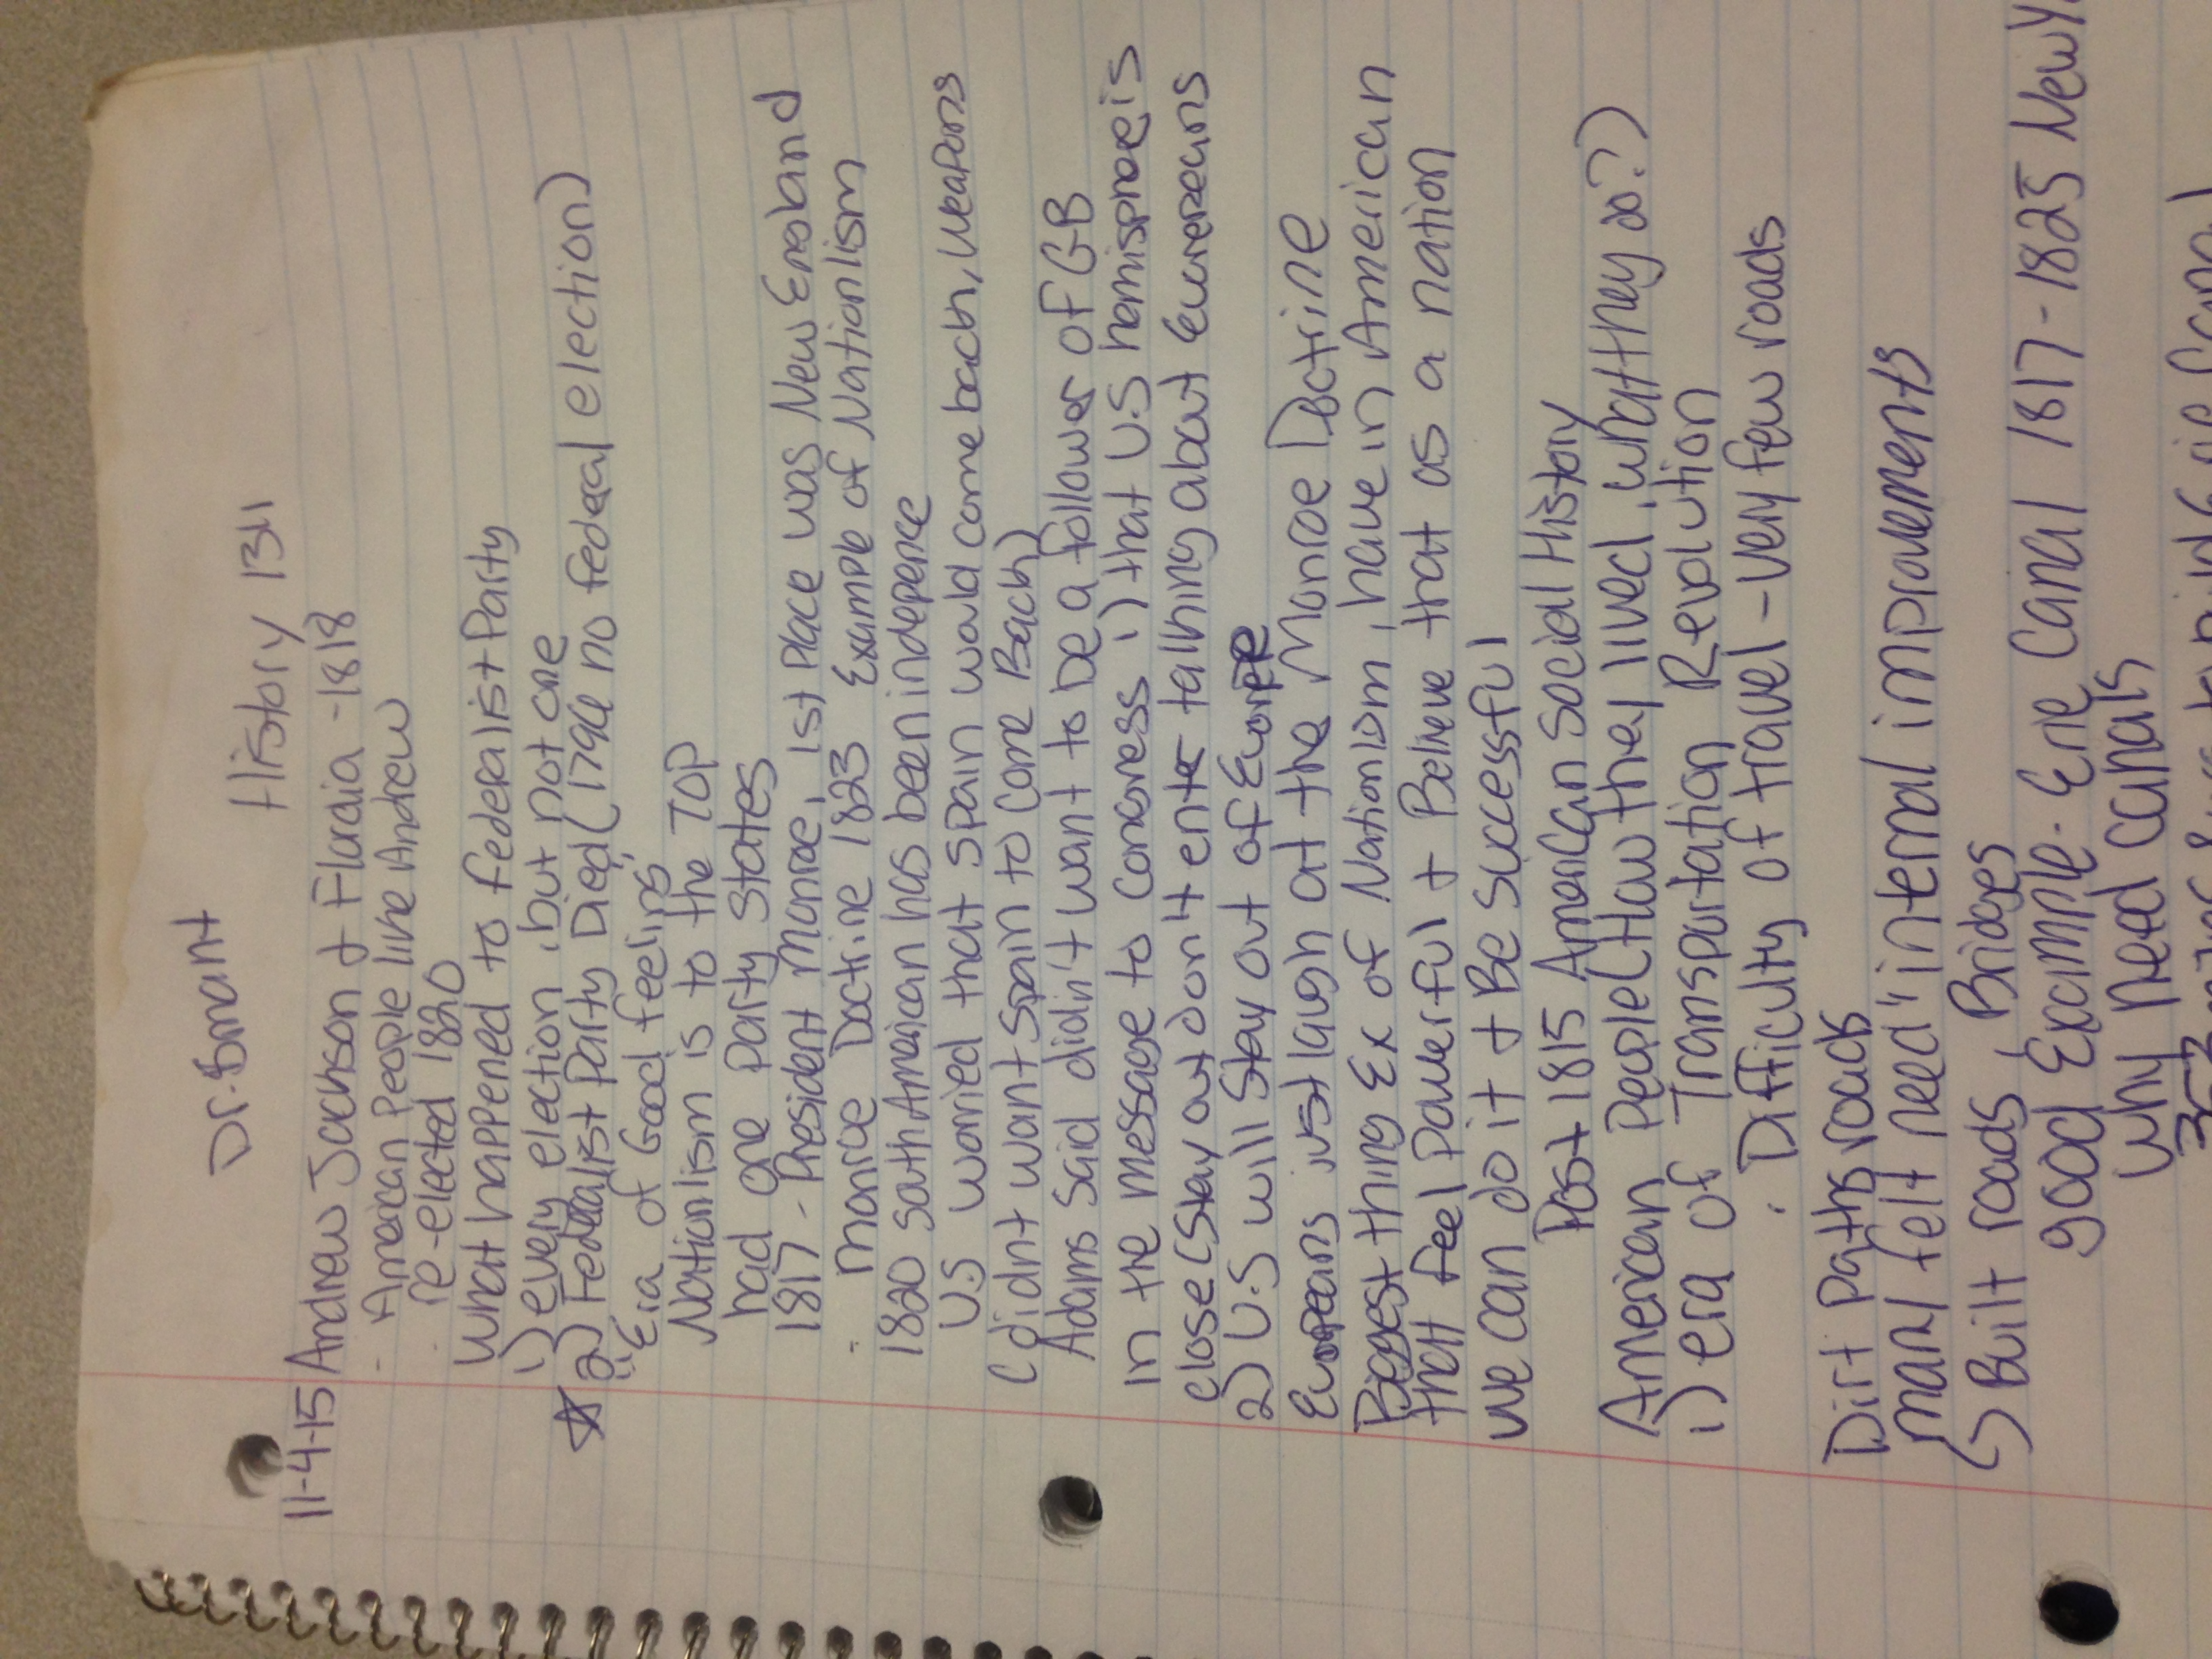 Dr. Smant
History 1311
11-4-15 Andrew Jackson + Flordia - 1818
- American People like Andrew
. re-elected 1820
What happened to Federalist Party
1) every election, but not one
☆ 2) Federalist Party Died (1796 no federal election)
"Era of Good feeling"
Nationlism is to the TOP
had one party states
1817 - President Monroe, 1st Place was New England
. Monroe Doctrine 1823 Example of Nationlism
1820 South American has been indepence
U.S worried that Spain would come back, Weapons
(didnt want Spain to come Back)
Adams said didin't want to be a follower of GB
In the message to Congress 1) that U.S hemisphoe is
close (Stay out don't enter talking about Eurepeans
2) U.S will stay out of Europe
Europeans just laugh at the Monroe Doctrine
Biggest thing Ex of Nationlism, have in American
that feel Powerful + Believe that as a nation
we can do it + Be successful
Post 1815 American Social History
American People (How they lived, what they do?)
1) era of Transportation Revolution
. Difficulty of travel - very few roads
Dirt Paths roads
many felt need "internal improvements
Built roads, Bridges
good Example - Erie Canal 1817-1825 New
Why need canals